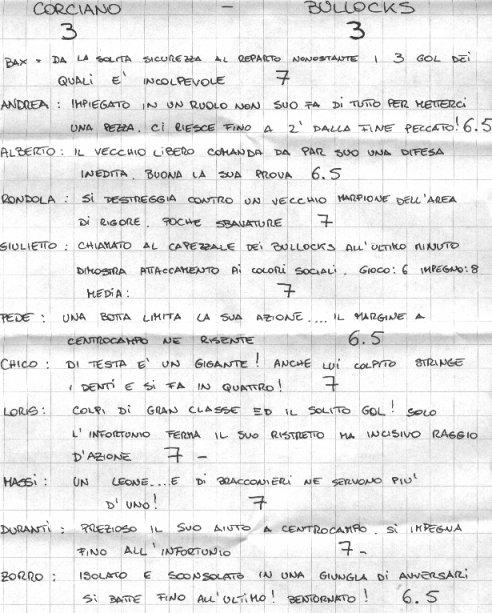 CORCIANO – BULLOCKS
3 3
BAX = DA LA SOLITA SICUREZZA AL REPARTO NONOSTANTE I 3 GOL DEI
QUALI E' INCOLPEVOLE 7
ANDREA : IMPIEGATO IN UN RUOLO NON SUO FA DI TUTTO PER METTERCI
UNA PEZZA. CI RIESCE FINO A 2' DALLA FINE PECCATO! 6.5
ALBERTO : IL VECCHIO LIBERO COMANDA DA PAR SUO UNA DIFESA
INEDITA. BUONA LA SUA PROVA 6.5
RONDOLA : SI DESTREGGIA CONTRO UN VECCHIO MARPIONE DELL'AREA
DI RIGORE. POCHE SBAVATURE 7
GIULIETTO : CHIAMATO AL CAPEZZALE DEI BULLOCKS ALL'ULTIMO MINUTO
DIMOSTRA ATTACCAMENTO AI COLORI SOCIALI. GIOCO: 6 IMPEGNO: 8
MEDIA : 7
PEDE : UNA BOTTA LIMITA LA SUA AZIONE.... IL MARGINE A
CENTROCAMPO NE RISENTE 6.5
CHICO : DI TESTA E' UN GIGANTE! ANCHE LUI COLPITO STRINGE
I DENTI E SI FA IN QUATTRO! 7
LORIS : COLPI DI GRAN CLASSE ED IL SOLITO GOL! SOLO
L'INFORTUNIO FERMA IL SUO RISTRETTO MA INCISIVO RAGGIO
D'AZIONE 7 –
MASSI : UN LEONE....E DI BRACCONIERI NE SERVONO PIU'
D'UNO! 7
DURANTI : PREZIOSO IL SUO AIUTO A CENTROCAMPO. SI IMPEGNA
FINO ALL'INFORTUNIO 7 -
ZORRO : ISOLATO E SCONSOLATO IN UNA GIUNGLA DI AVVERSARI
SI BATTE FINO ALL'ULTIMO! BENTORNATO! 6.5